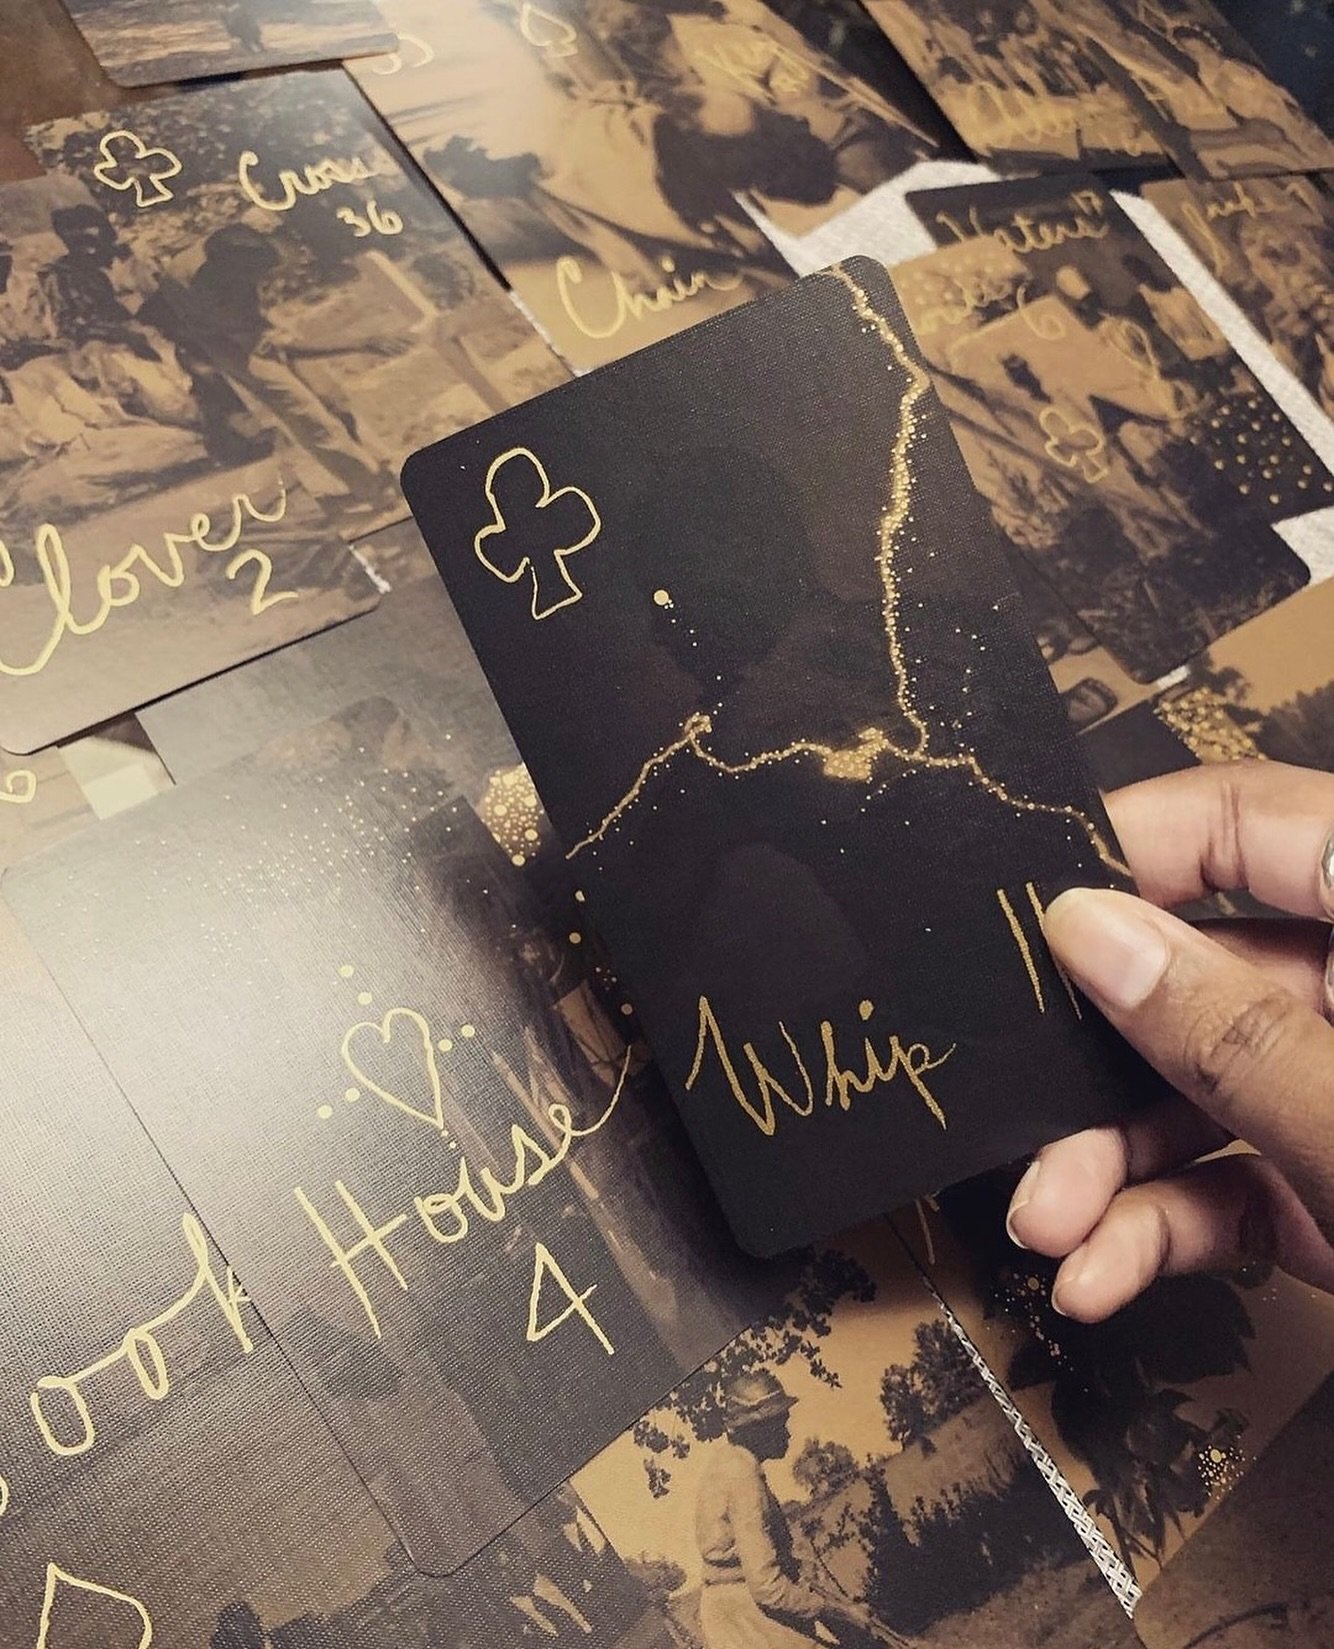 Cross
36
Chain
Waters 17
6
Clover
2
6
11
Whip
House
4
ook